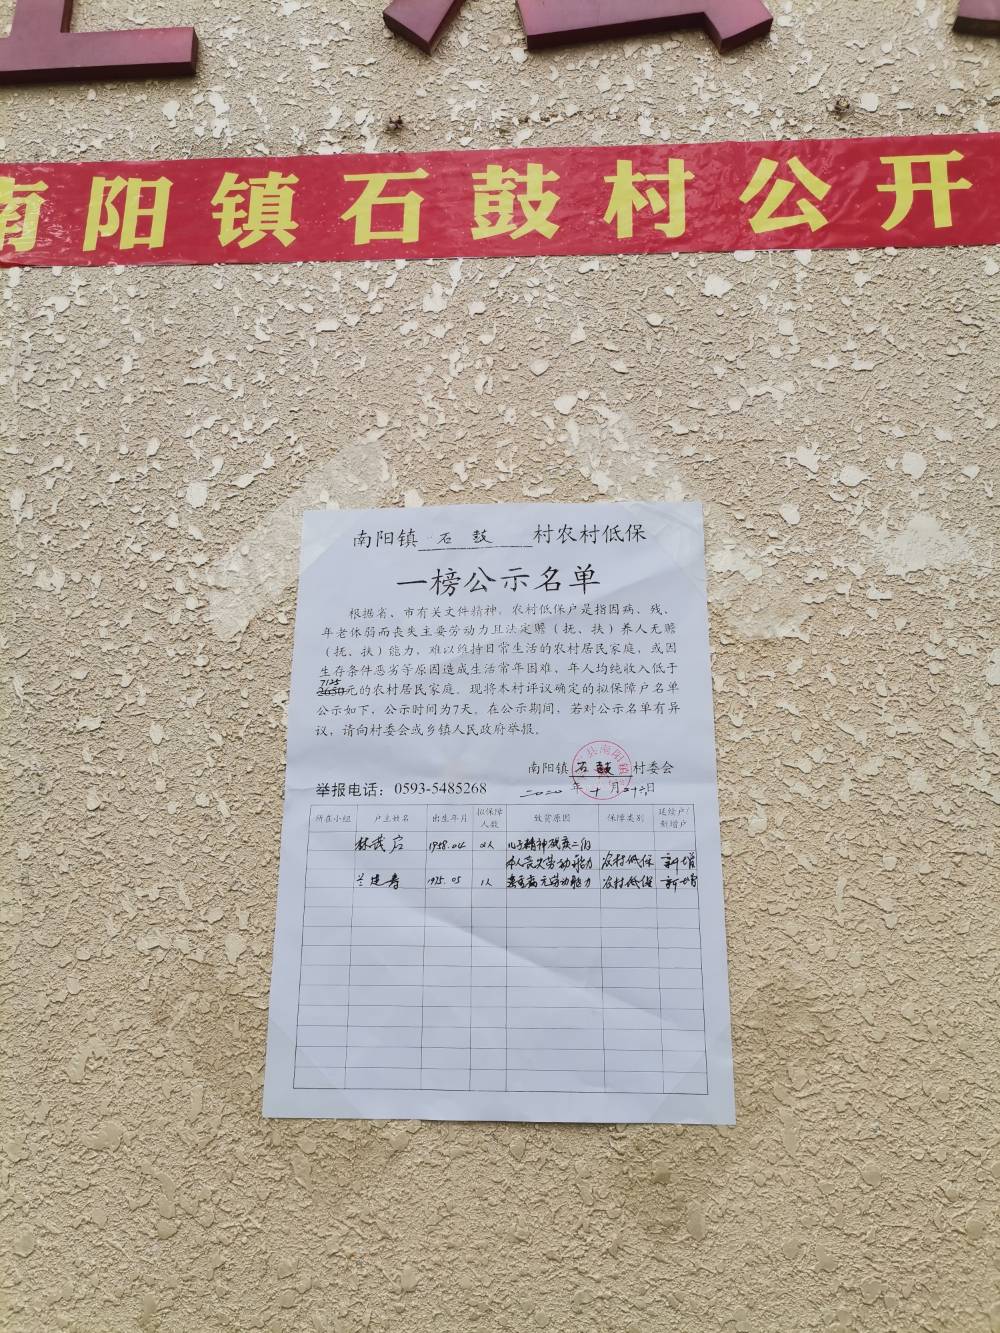 南阳镇石鼓村公开
南阳镇 石鼓 村农村低保
一榜公示名单
根据省、市有关文件精神，农村低保户是指因病、残、
年老体弱而丧失主要劳动力且法定赡（抚、扶）养人无赡
（抚、扶）能力，难以维持日常生活的农村居民家庭，或因
生存条件恶劣等原因造成生活常年困难，年人均纯收入低于
7125
3650元的农村居民家庭。现将本村评议确定的拟保障户名单
公示如下，公示时间为7天。在公示期间，若对公示名单有异
议，请向村委会或乡镇人民政府举报。
南阳镇 石鼓 村委会
举报电话：0593-5485268 2020年 十月 日
所在小组 户主姓名 出生年月 拟保障人数 致贫原因 保障类别 延续户/新增户
林成启 1958.04 2人 儿子精神残疾二级
本人丧失劳动能力 农村低保 新增
兰建寿 1975.05 1人 无劳动能力 农村低保 新增